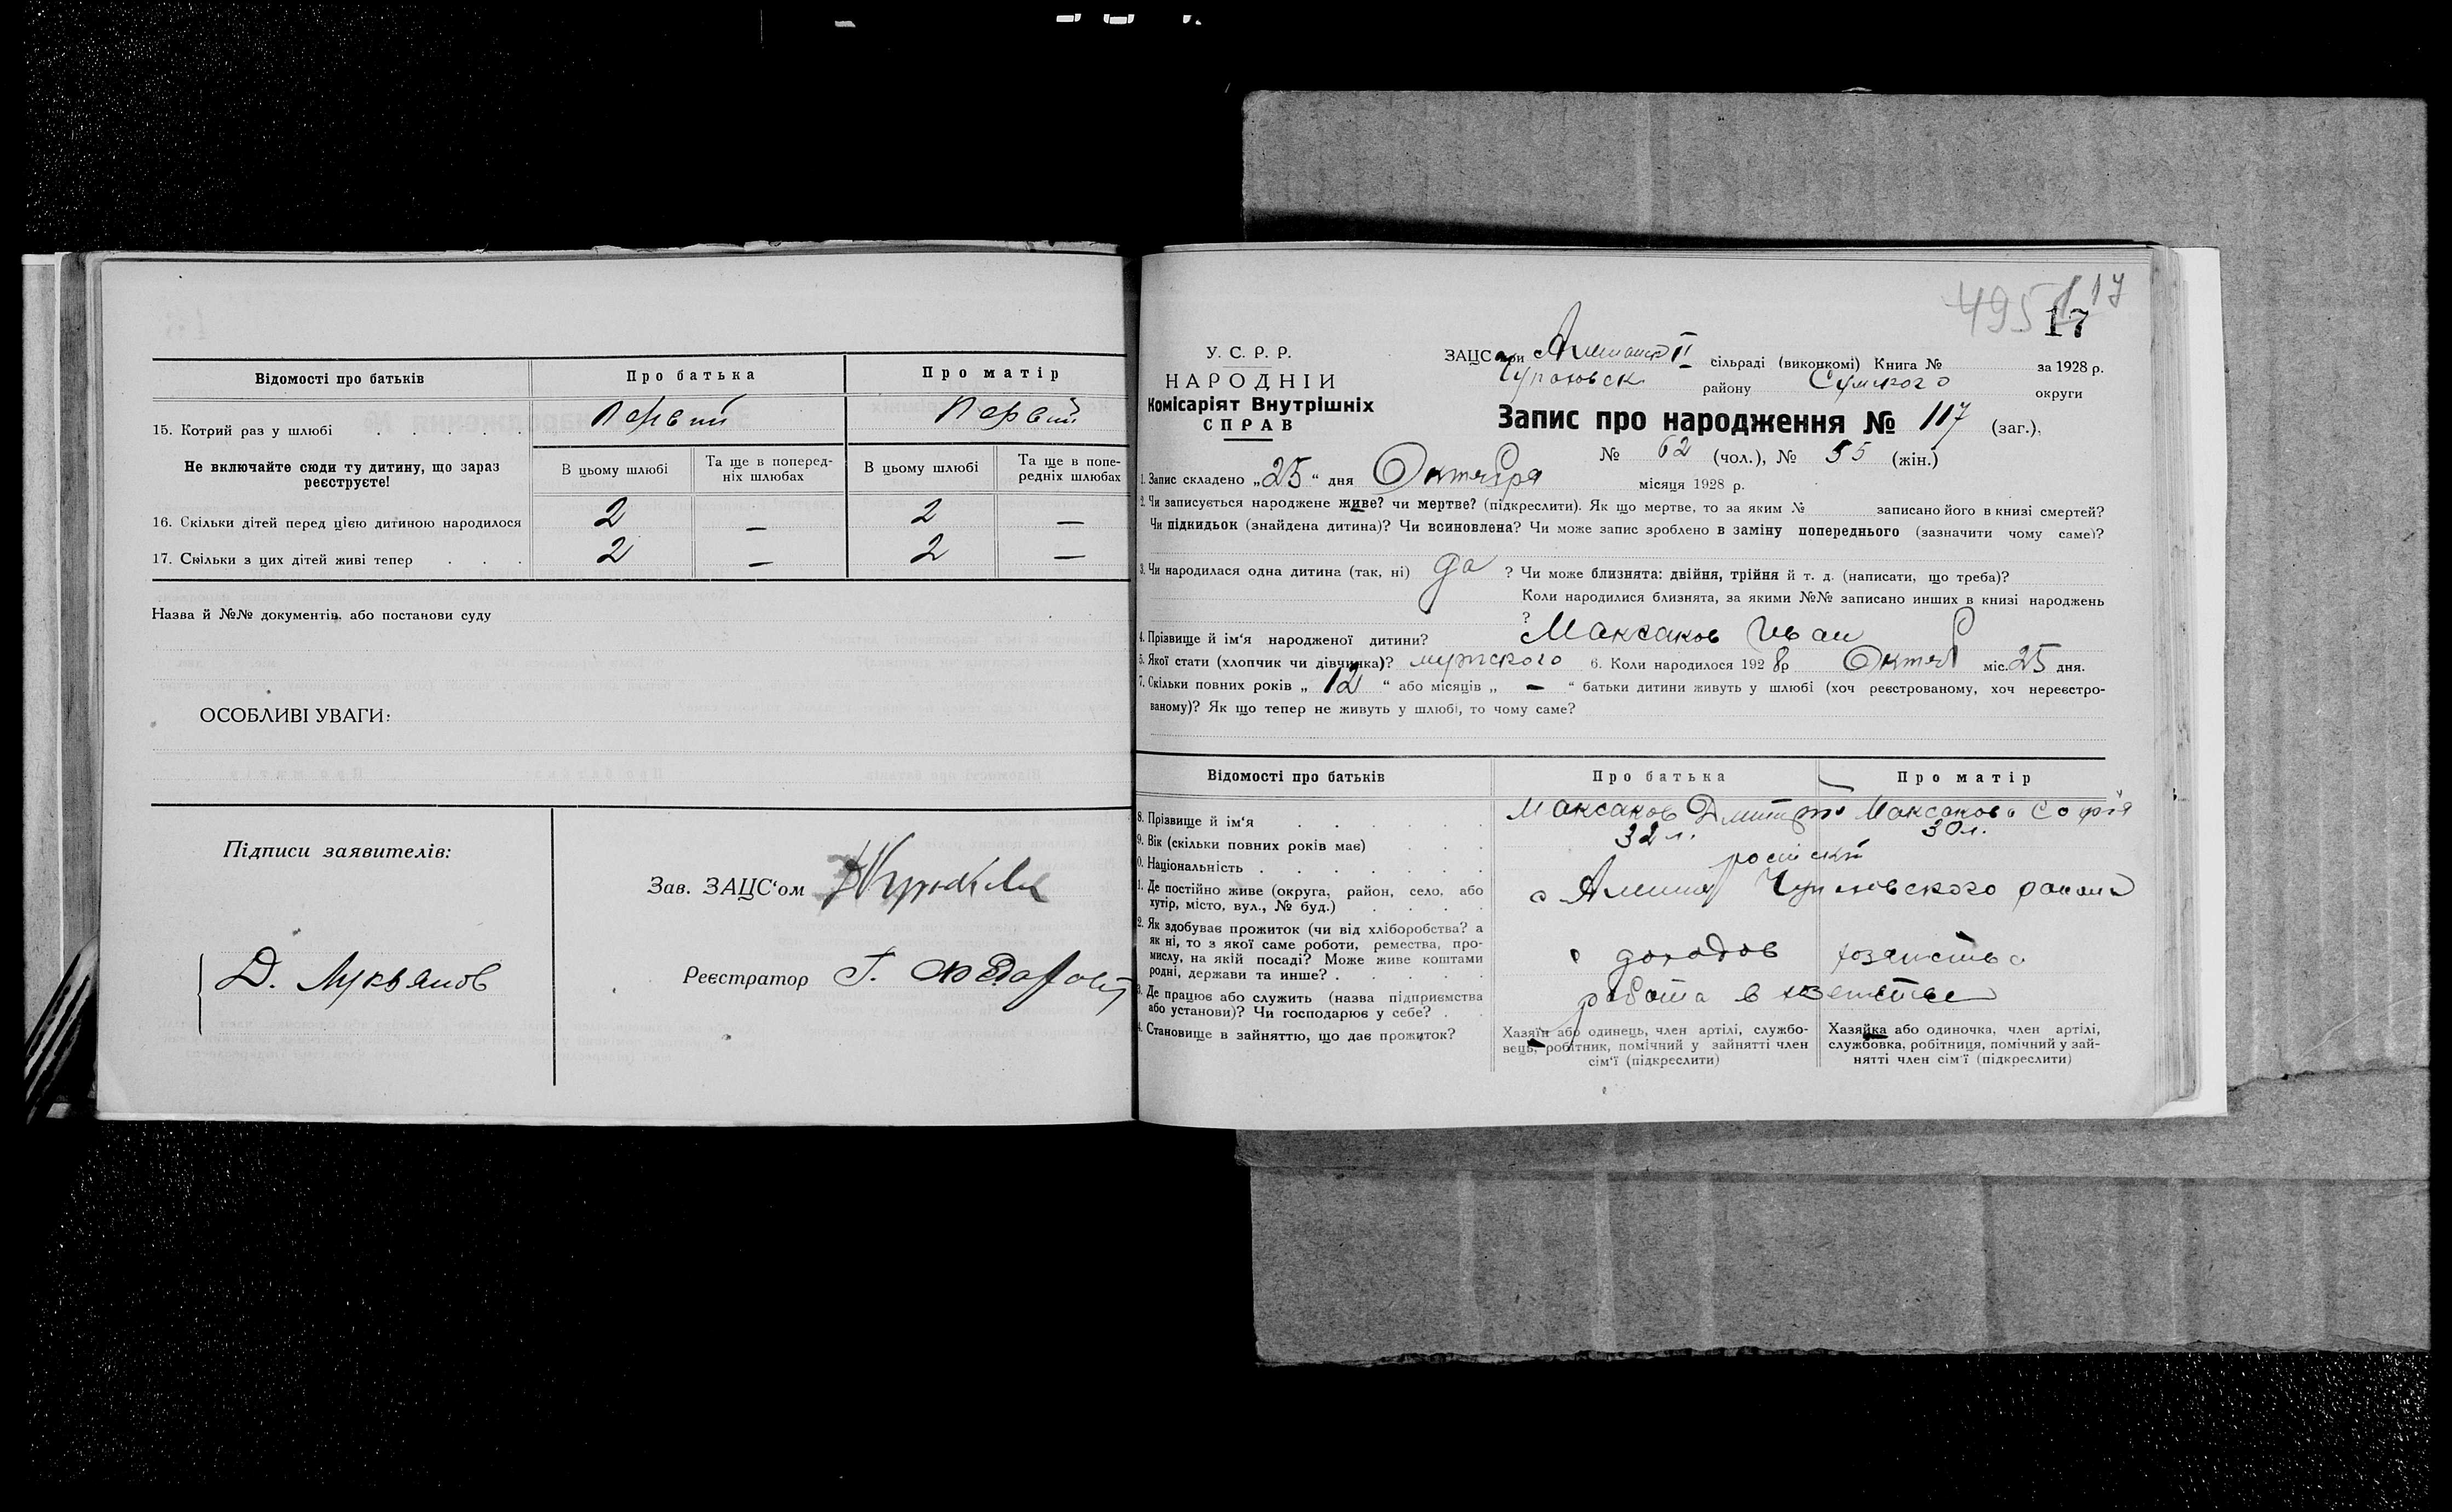 Відомості про батьків
Про батька
Про матір
15. Котрий раз у шлюбі
Первий
Первий
Не включайте сюди ту дитину, що зараз
реєструєте!
В цьому шлюбі
Та ще в поперед-
ніх шлюбах
В цьому шлюбі
Та ще в попе-
редніх шлюбах
16. Скільки дітей перед цією дитиною народилося
2 — 2 —
17. Скільки з цих дітей живі тепер
2 — 2 —
Назва й №№ документів, або постанови суду
ОСОБЛИВІ УВАГИ:
Підписи заявителів:
Д. Лукьянов
Зав. ЗАЦС‘ом
Реєстратор Г.
495 117
17
У. С. Р. Р.
НАРОДНІЙ
Комісаріят Внутрішніх
СПРАВ
ЗАЦС при II сільраді (виконкомі) Книга № за 1928 р.
району Сумского округи
Запис про народження № 117 (заг.),
№ 62 (чол.), № 55 (жін.)
1. Запис складено „25“ дня Октября місяця 1928 р.
2. Чи записується народжене живе? чи мертве? (підкреслити). Як що мертве, то за яким № записано його в книзі смертей?
Чи підкидьок (знайдена дитина)? Чи всиновлена? Чи може запис зроблено в заміну попереднього (зазначити чому саме)?
3. Чи народилася одна дитина (так, ні) да ? Чи може близнята: двійня, трійня й т. д. (написати, що треба)?
Коли народилися близнята, за якими №№ записано инших в книзі народжень
?
4. Прізвище й ім‘я народженої дитини? Максаков Иван
5. Якої стати (хлопчик чи дівчинка)? мужского 6. Коли народилося 1928р Октяб міс. 25 дня.
7. Скільки повних років „ 12 “ або місяців „ — “ батьки дитини живуть у шлюбі (хоч реєстрованому, хоч нереєстро-
ваному)? Як що тепер не живуть у шлюбі, то чому саме?
Відомості про батьків
Про батька
Про матір
8. Прізвище й ім‘я
Максаков Дмитро Максакова Софія
9. Вік (скільки повних років має)
32 л. 30 л.
0. Національність
1. Де постійно живе (округа, район, село, або
хутір, місто, вул., № буд.)
2. Як здобуває прожиток (чи від хліборобства? а
як ні, то з якої саме роботи, ремества, про-
мислу, на якій посаді? Може живе коштами
родні, держави та инше?
доходов
3. Де працює або служить (назва підприємства
або установи)? Чи господарює у себе?
работа в
4. Становище в зайняттю, що дає прожиток?
Хазяїн або одинець, член артілі, службо-
вець, робітник, помічний у зайнятті член
сім‘ї (підкреслити)
Хазяйка або одиночка, член артілі,
службовка, робітниця, помічний у зай-
нятті член сім‘ї (підкреслити)